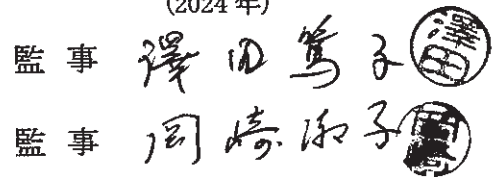 (2024年)
監事 澤田篤子 澤田
監事 岡崎淑子